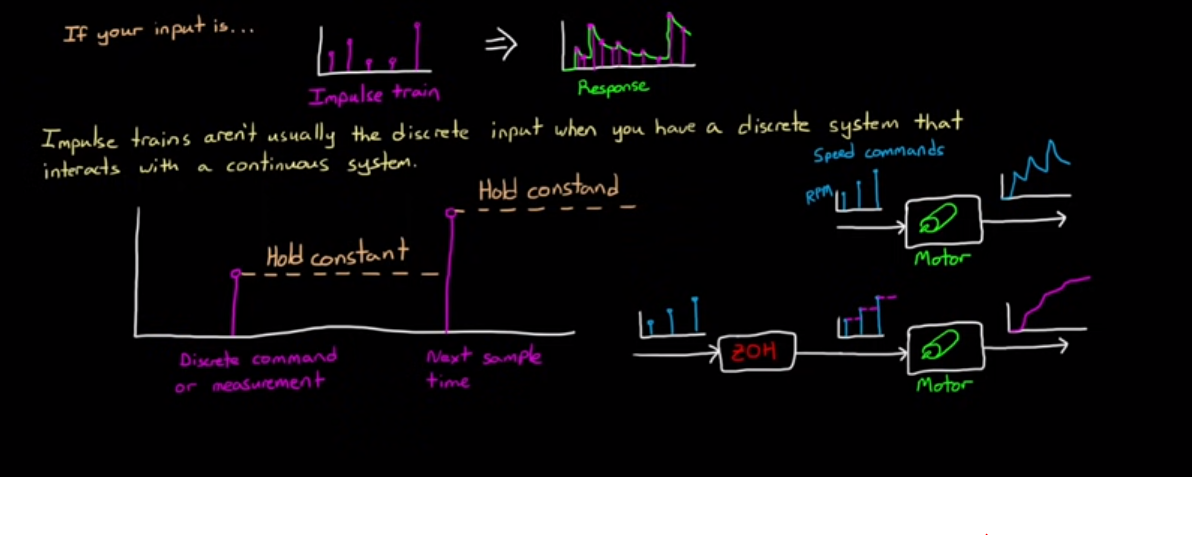 If your input is...
Impulse train
⇒
Response
Impulse trains aren't usually the discrete input when you have a discrete system that
interacts with a continuous system.
Speed commands
RPM
Motor
Hold constand
Hold constant
Discrete command
or measurement
Next sample
time
ZOH
Motor